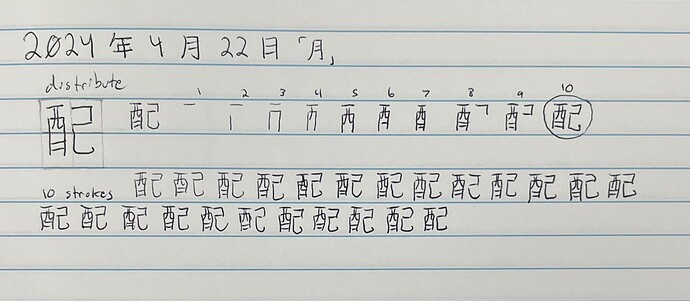 2024 年 4 月 22 日 「月」
distribute 1 2 3 4 5 6 7 8 9 10
配 配 配
10 strokes 配 配 配 配 配 配 配 配 配 配 配 配 配
配 配 配 配 配 配 配 配 配 配 配